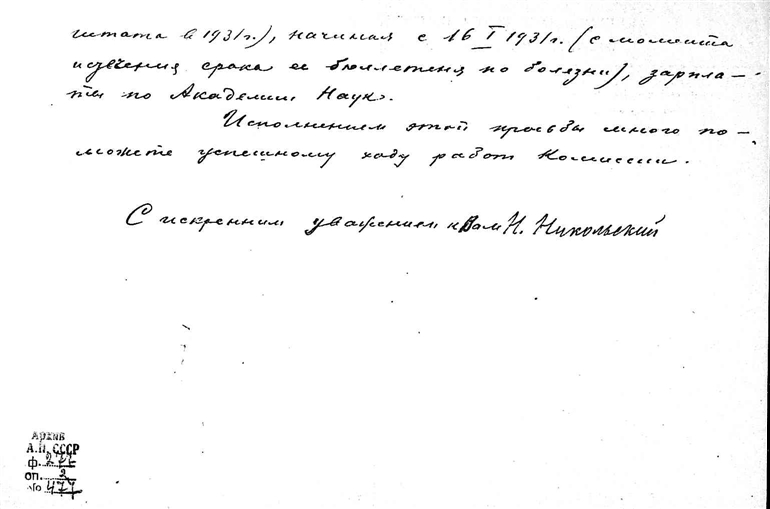 штата в 1931г.), начиная с 16 I 1931г. (с момента
истечения срока ее бюллетеня по болезни), зарпла-
ты по Академии Наук.
Исполнением этой просьбы много по-
можете успешному ходу работ Комиссии.
С искренним уважением к Вам Н. Никольский
Архив
А.Н. СССР
ф.
оп. 2
№ 477